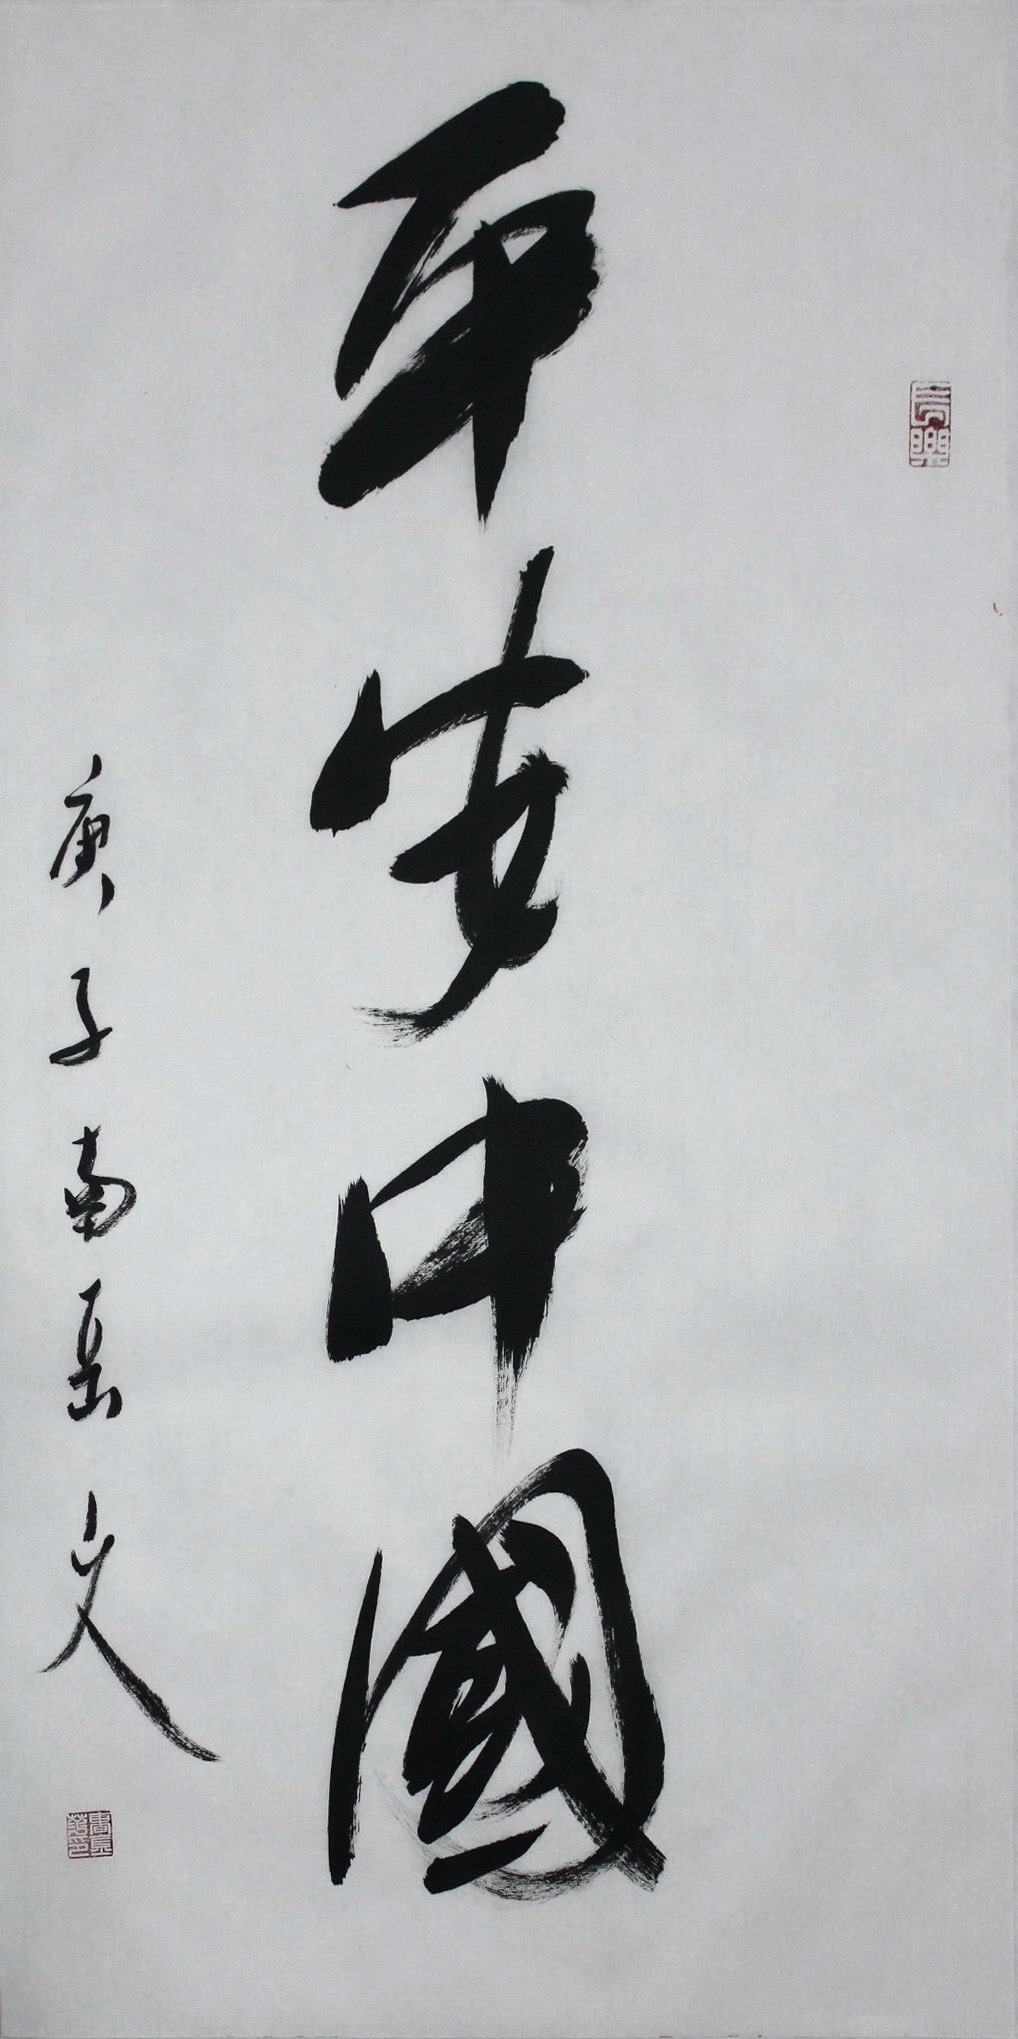 平安中國
庚子南岳文